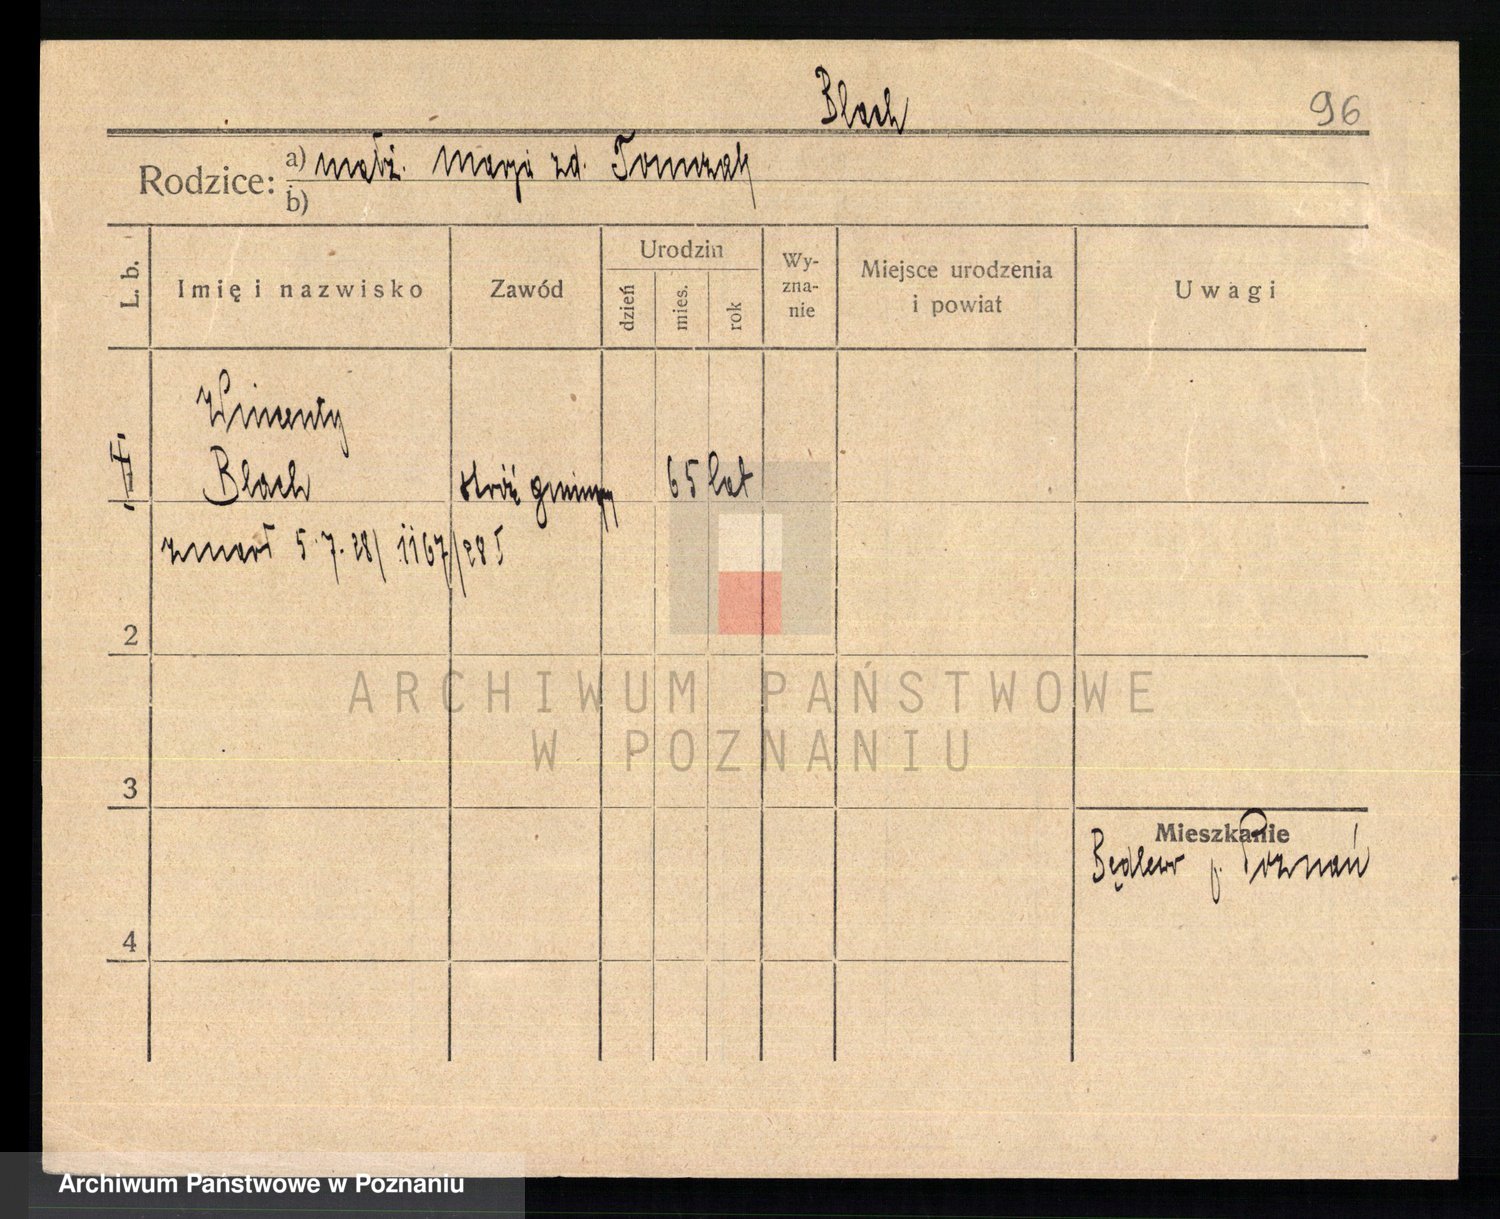 Blach
96
Rodzice: a) małż. Marji zd. Tomczak
b)
L. b.
Imię i nazwisko
Zawód
Urodzin
dzień
mies.
rok
Wy-
zna-
nie
Miejsce urodzenia
i powiat
Uwagi
Wincenty
Blach
stróż gminny
65 lat
zmarł 5.7.28/ 1167/285
2
3
4
Mieszkanie
Będlewo p. Poznań
ARCHIWUM PAŃSTWOWE
W POZNANIU
Archiwum Państwowe w Poznaniu